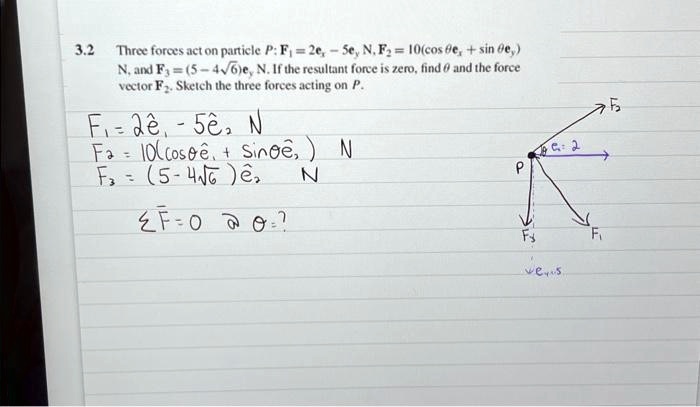 3.2 Three forces act on particle P: F₁ = 2eₓ − 5e_y N, F₂ = 10(cos θeₓ + sin θe_y)
N, and F₃ = (5 − 4√6)e_y N. If the resultant force is zero, find θ and the force
vector F₂. Sketch the three forces acting on P.
F₁ = 2ê₁ - 5ê₂ N
F₂ = 10(cosθê₁ + sinθê₂) N
F₃ = (5-4√6)ê₂ N
ΣF̄=0 ∂ θ=?
F₂
θ
2
P
F₃
F₁